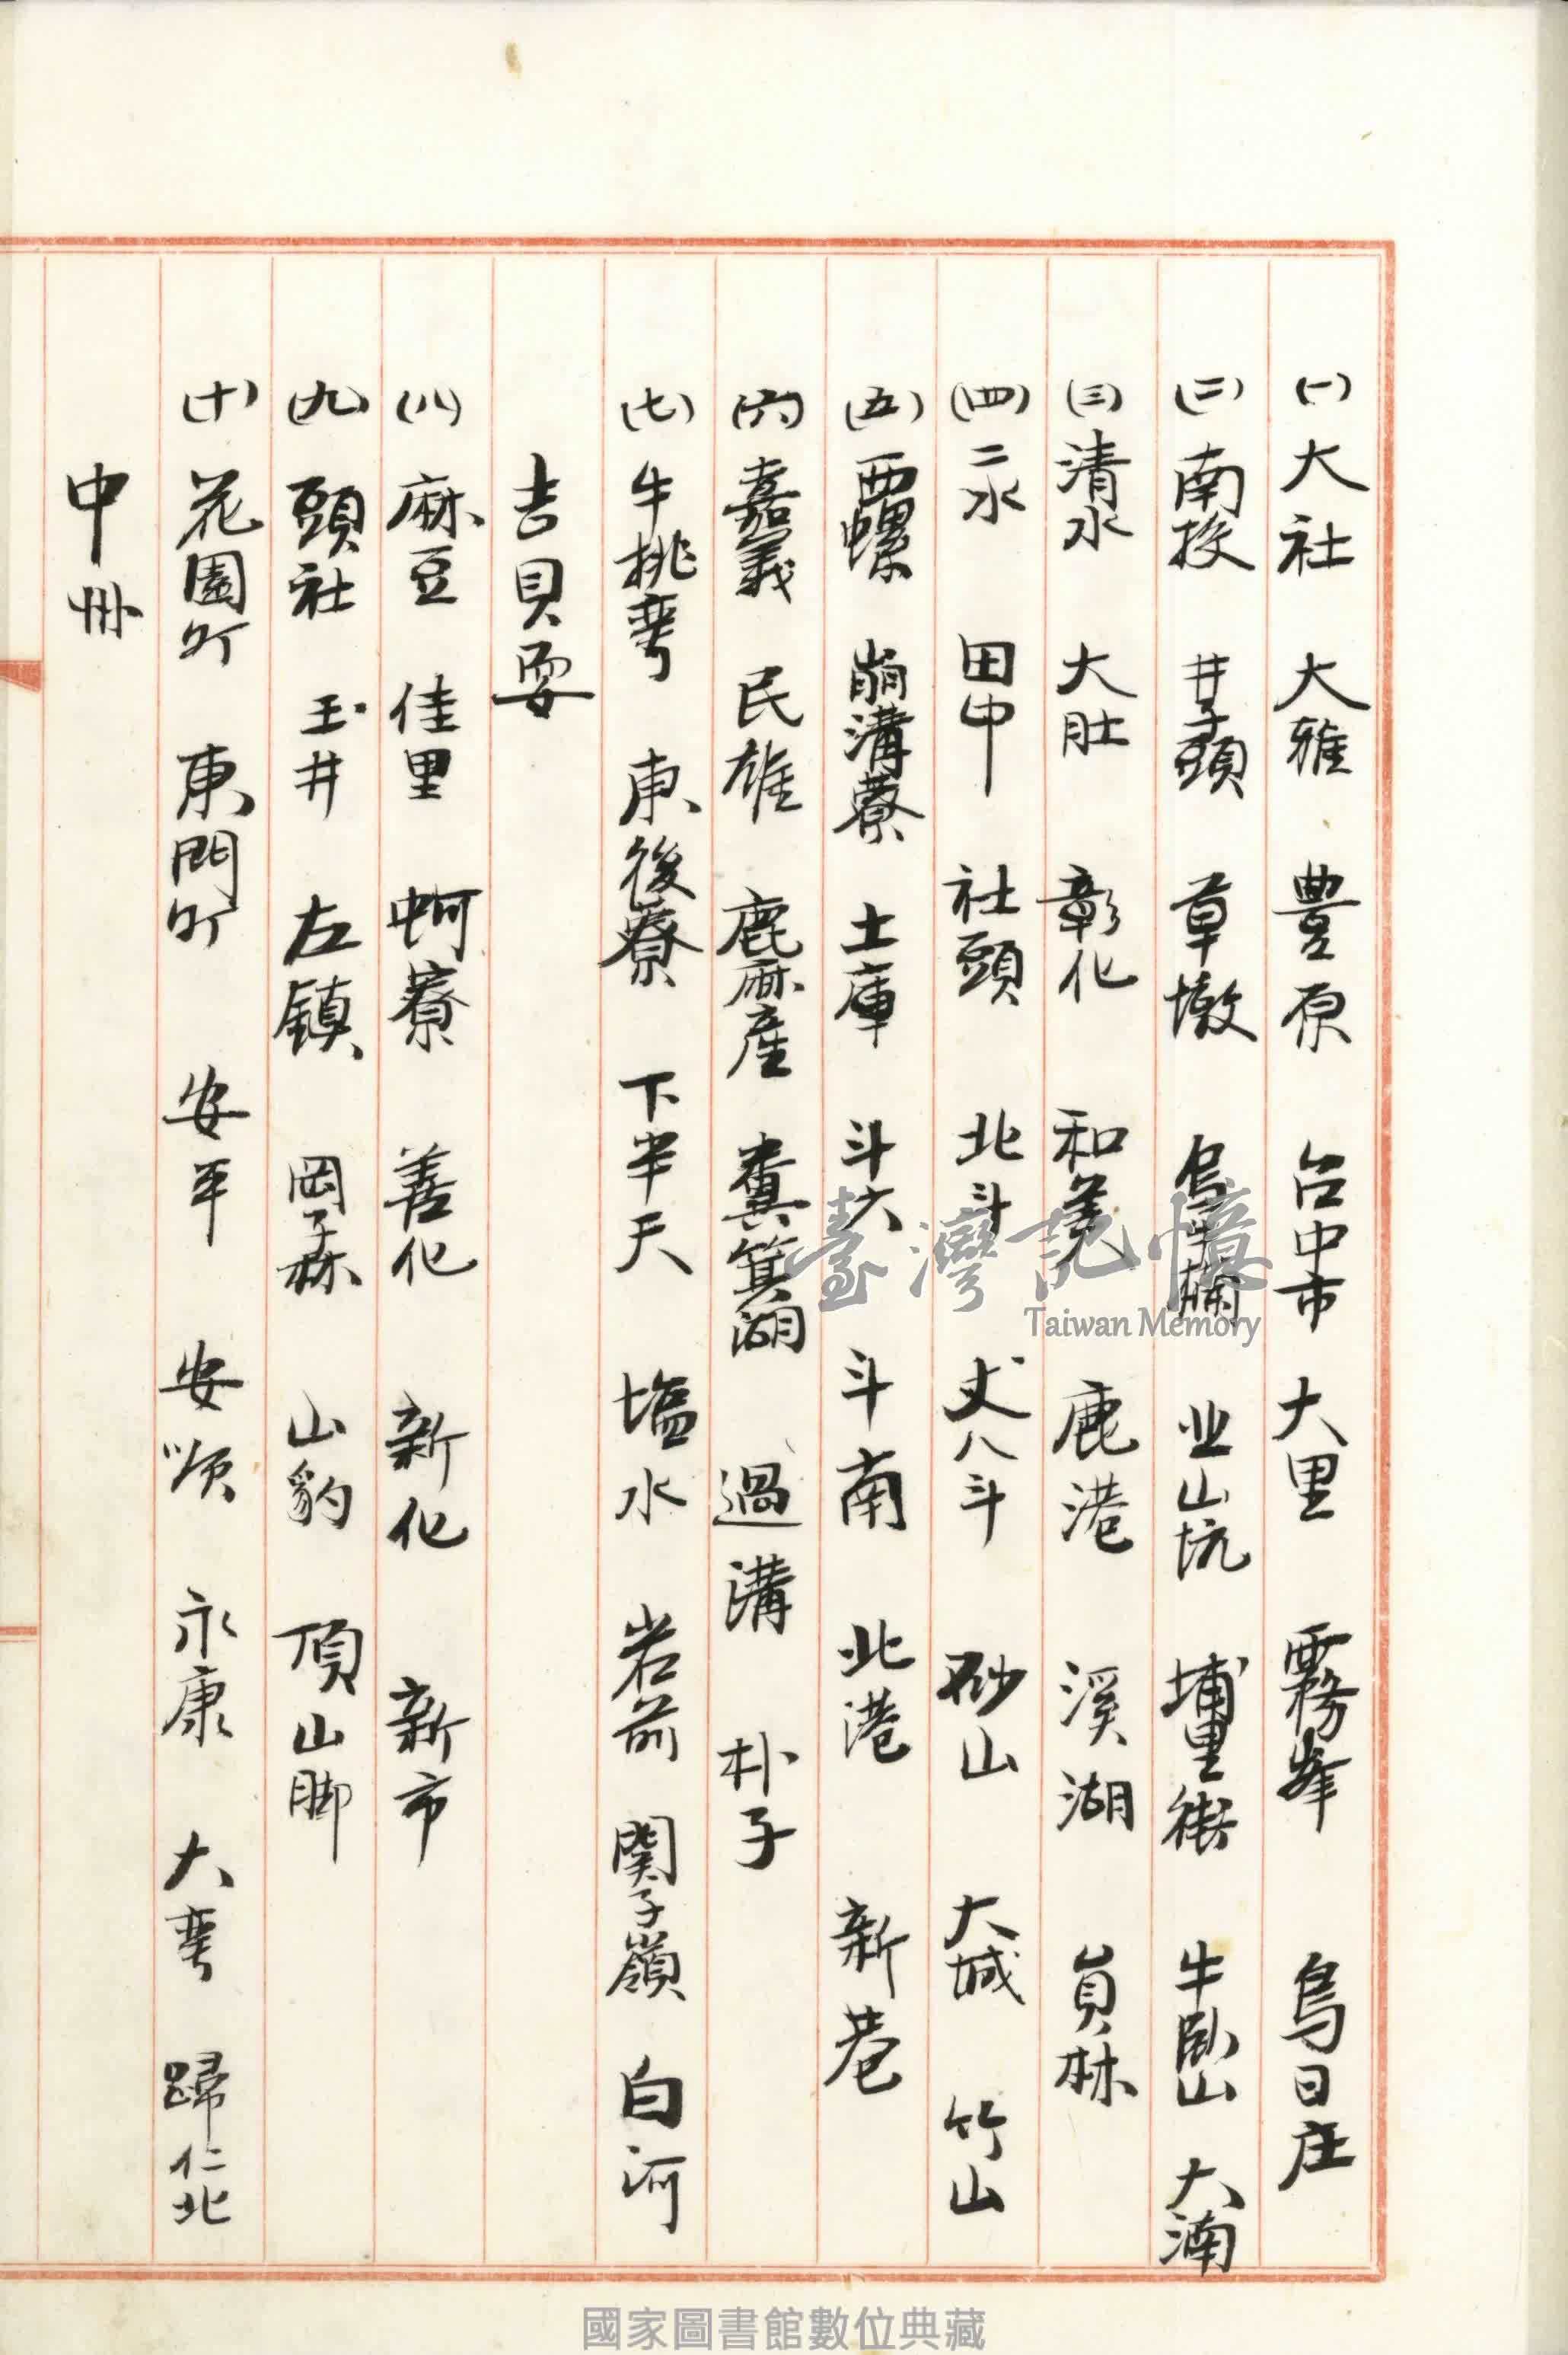 (一) 大社 大雅 豊原 台中市 大里 霧峯 烏日庄
(二) 南投 井子頭 草墩 烏牛欄 业山坑 埔里街 牛臥山 大湳
(三) 清水 大肚 彰化 和美 鹿港 溪湖 員林
(四) 二水 田中 社頭 北斗 丈八斗 砂山 大城 竹山
(五) 西螺 崩溝藔 土庫 斗六 斗南 北港 新巷
(六) 嘉義 民雄 鹿麻産 糞箕湖 過溝 朴子
(七) 牛挑弯 東後藔 下半天 塩水 岩前 関子嶺 白河
吉貝耍
(八) 麻豆 佳里 蚵寮 善化 新化 新市
(九) 頭社 玉井 左鎮 岡子林 山豹 頂山脚
(十) 花園町 東門町 安平 安順 永康 大弯 歸仁北
中州
臺灣記憶
Taiwan Memory
國家圖書館數位典藏